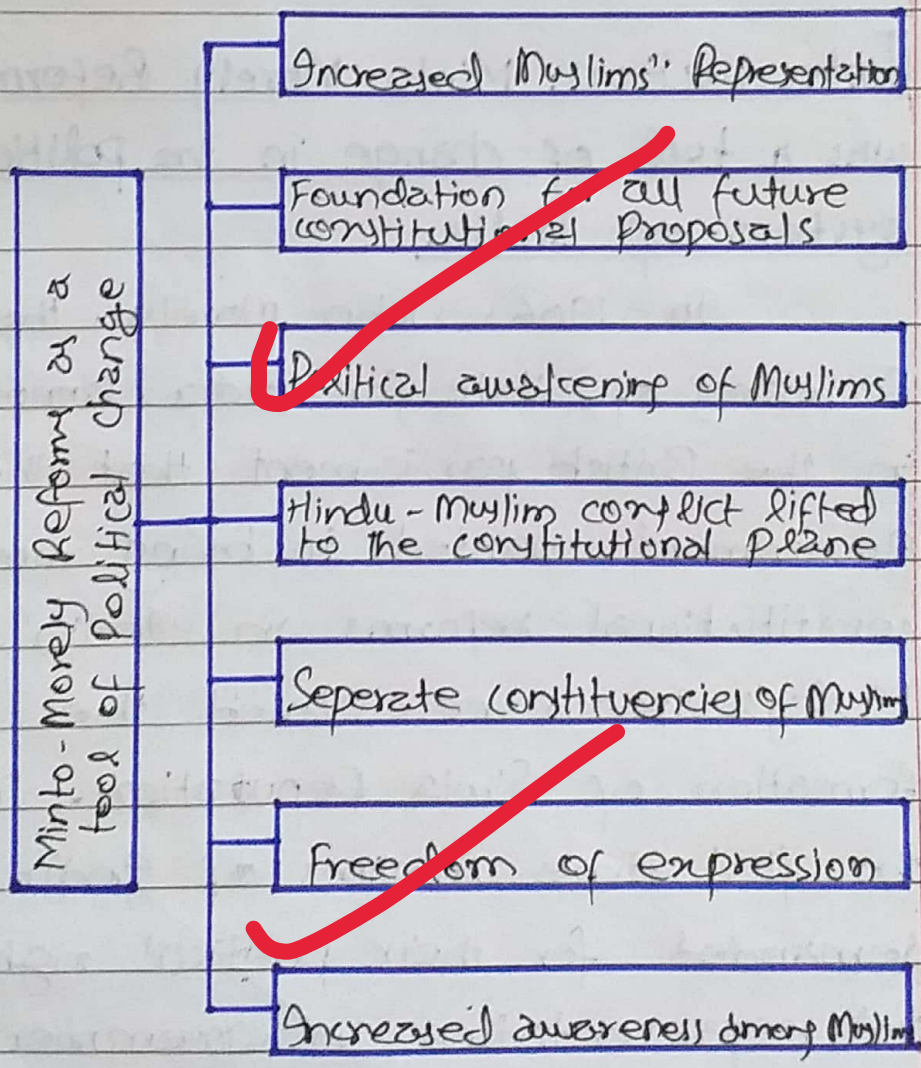 Minto-Morely Reforms as a
tool of Political change
Increased Muslims" Representation
Foundation for all future
constitutional Proposals
Political awakening of Muslims
Hindu-Muslim conflict lifted
to the constitutional Plane
Seperate constituencies of Muslims
Freedom of expression
Increased awareness among Muslims